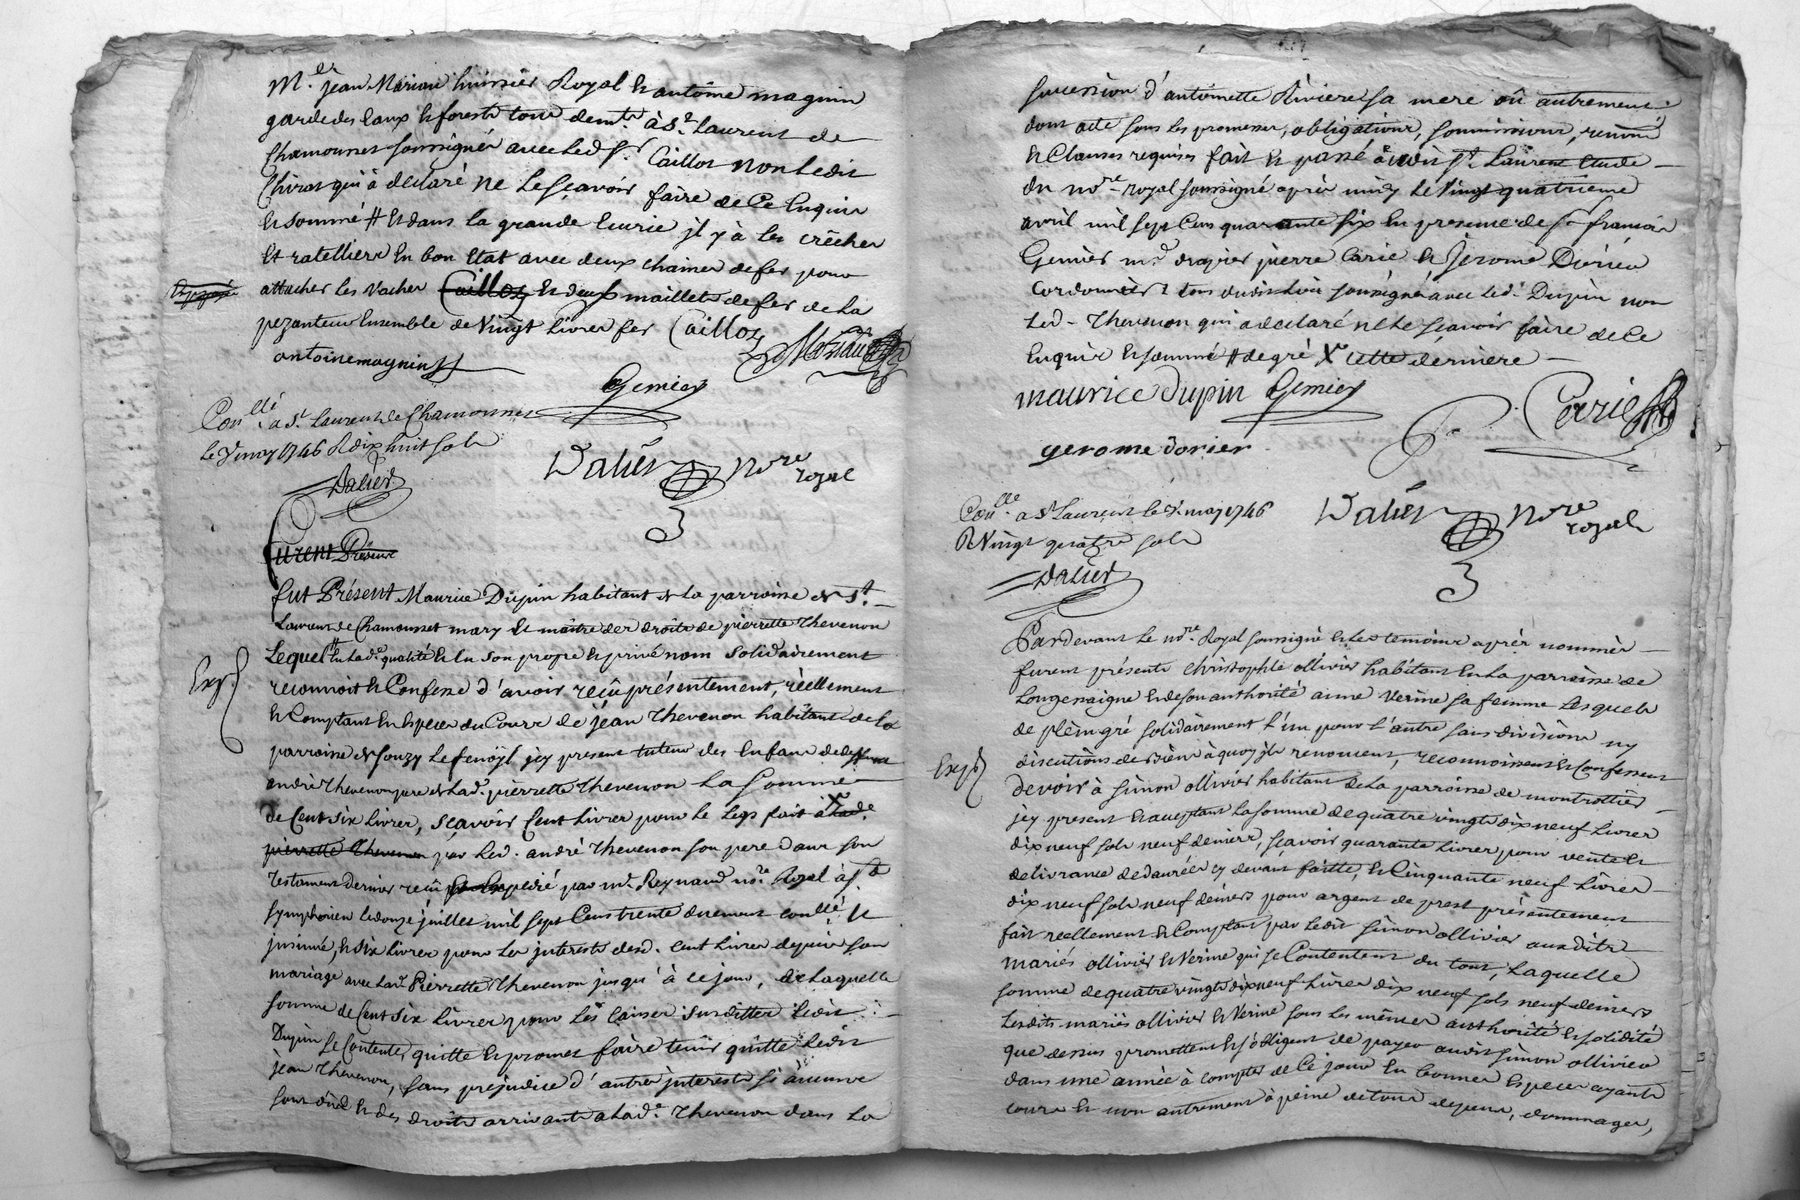 Mr. jean Marion huissier Royal & antoine magnin
garde des Eaux & forests tous demts. à St. Laurent de
Chamousset soussignés avec Led Sr. Caillot non Ledit
Chirat qui à declaré ne Le sçavoir faire de Ce Enquis
& sommé # & dans la grande Ecurie jl y à les crêches
Et ratelliers En bon Etat avec deux chaines de fer pour
attacher les vaches Caillot & deux maillets de fer de La
pezanteur Ensemble de Vingt Livres fer Caillot
antoine magnin
Gemier
Conllé. a St. Laurent de Chamousset
Le 7 may 1746 R dix huit sols
Dalier
Dalier Nore
royal
furent Présent
fut Présent Maurice Dupin habitant de La parroisse de St.
Laurent de Chamousset mary Et maître des droits de pierrette Thevenon
Lequel En Lad. qualité & En son propre & privé nom solidairement
reconnoit & Confesse d'avoir reçû présentement, réellement
& Comptant En Especes du Cours de jean Thevenon habitant de La
parroisse de souzy Lefenöyl jcy present tuteur des Enfans de deffunt
andré Thevenon pere de Lad. pierrette Thevenon La somme
de Cent six Livres, sçavoir Cent Livres pour le Legs fait à Lade.
pierrette Thevenon par Led. andré Thevenon son pere dans son
Testament dernier reçû Et Expedié par me. Reynaud nore. Royal à St.
Symphorien Le douze juillet mil sept Cens trente duement conllé. &
jnsinué, & six Livres pour Les jnterests desd. Cent Livres depuis son
mariage avec Lad. Pierrette Thevenon jusqu'à ce jour, de Laquelle
somme de Cent six Livres pour Les Causes susdittes Ledit
Dupin se Contente, quitte & promet faire tenir quitte Ledit
jean Thevenon, sans prejudice d'autres jnterests si aucuns
sont dûs & des droits arrivants a Lade. Thevenon dans La
Exp.
succession d'antoinette Riviere sa mere où autrement
dont acte sous Les promesses, obligations, soumissions, renons.
& Clauses requises fait & passé audit St. Laurent Etude
du nore. royal soussigné après midy Le Vingt quatrieme
avril mil sept Cens quarante six En presence de Sr françois
Gemier md. drapier pierre Carrié & Jerome Dorier
Cordonnier tous dudit Lieu soussigné avec Led. Dupin non
Led. Thevenon qui a declaré ne Le sçavoir faire de Ce
Enquis & sommé # de gré X cette derniere
maurice dupin Gemier
P. Carrié
gerome dorier
Conlle. a St Laurent le 7. may 1746
R Vingt quatre sols
Dalier
Dalier Nore
royal
Pardevant Le nore. Royal soussigné & Les temoins après nommés
furent présents christophle ollivier habitant En La parroisse de
Longessaigne & de son authorité anne Verine sa femme Lesquels
de plein gré solidairement L'un pour L'autre sans division ny
discution de Biens à quoy jls renoncent, reconnoissent & Confessent
devoir à simon ollivier habitant de La parroisse de montrottier
jcy present & acceptant La somme de quatre vingts dix neuf Livres
dix neuf sols neuf deniers, sçavoir quarante Livres pour vente &
delivrance de danrées cy devant faitte, & Cinquante neuf Livres
dix neuf sols neuf deniers pour argent de prest présentement
fait reellement & Comptant par Ledit simon ollivier auxdits
mariés ollivier & Verine qui se Contentent du tout, Laquelle
somme de quatre vingts dix neuf Livres dix neuf sols neuf deniers
Lesdits mariés ollivier & Verine sous Les mêmes authorité & solidité
que dessus promettent & s'obligent de payer audit simon ollivier
dans une année à compter de Ce jour En bonnes Especes ayants
cours & non autrement à peine de tous depens, dommages,
Exp.